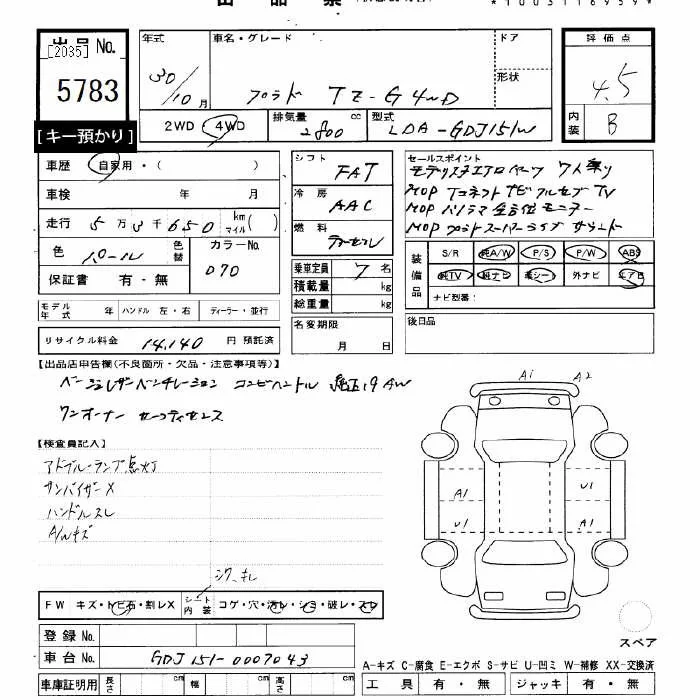 出品票
*1003116959*
出品 No.
[2035]
5783
[キー預かり]
年式
30/10月
車名・グレード
プラド TZ-G 4WD
ドア
形状
評価点
4.5
内装
B
2WD 4WD
排気量
2800 cc
型式
LDA-GDJ151W
車歴 自家用・( )
車検 年 月
走行 5万3千650 km マイル( )
色 パール 色替
カラーNo.
070
保証書 有・無
シフト
FAT
冷房
AAC
燃料
ディーゼル
乗車定員 7名
積載量 kg
総重量 kg
セールスポイント
モデリスタエアロパーツ 7人乗り
MOP Tコネクトナビ フルセグTV
MOP パノラマ 全方位モニター
MOP プラドスーパーライブサウンド
装備品
S/R 純A/W P/S P/W ABS
純TV 純ナビ 革シート 外ナビ エアB
ナビ型番:
モデル年式 年
ハンドル 左・右
ディーラー・並行
リサイクル料金 14,140 円 預託済
名変期限
月 日
後日品
【出品店申告欄(不良箇所・欠品・注意事項等)】
ベージュレザーベンチレーション コンビハンドル 純正19AW
ワンオーナー セーフティセンス
【検査員記入】
アドブルーランプ点灯
サンバイザーX
ハンドルスレ
A/Wキズ
シワ、キレ
FW キズ・トビ石・割レX
シート内装
コゲ・穴・汚レ・シミ・破レ・スレ
登録 No.
車台 No. GDJ151-0007043
車庫証明用 長さ cm 幅 cm 高さ cm
A1 A2
A1 U1
U1 A1
スペア
A-キズ C-腐食 E-エクボ S-サビ U-凹ミ W-補修 XX-交換済
工具 有・無 ジャッキ 有・無